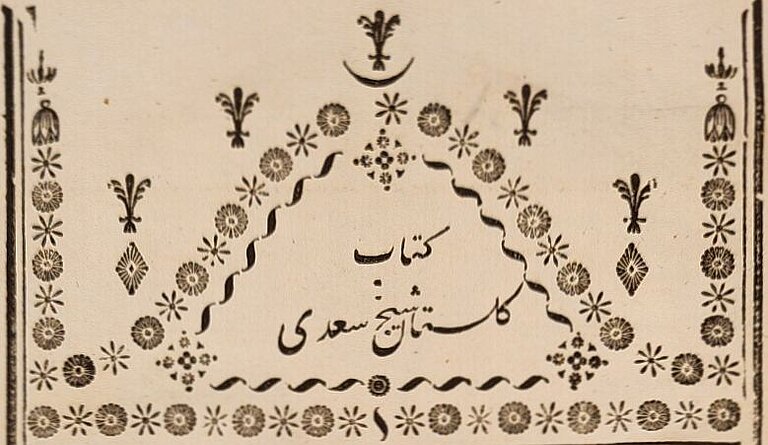 کتاب
کلستان شیخ سعدی